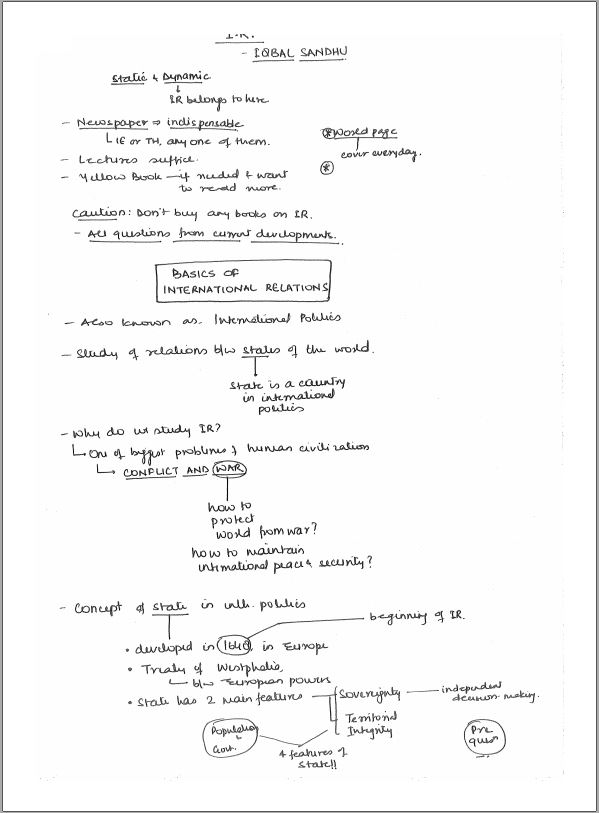 I.R.
- IQBAL SANDHU
Static & Dynamic
IR belongs to here
- Newspaper ⇒ indispensable
IE or TH, any one of them.
* World page
cover everyday.
- Lectures suffice.
*
- Yellow Book – if needed & want
to read more.
Caution: Don't buy any books on IR.
- All questions from current developments.
BASICS OF
INTERNATIONAL RELATIONS
- Also known as International Politics
- Study of relations b/w states of the world.
State is a country
in international
politics
- Why do we study IR?
One of biggest problems of human civilization
CONFLICT AND WAR
how to
protect
world from war?
how to maintain
international peace & security?
- Concept of state in intl. politics
beginning of IR.
• developed in 1648 in Europe
• Treaty of Westphalia,
b/w European powers
• State has 2 main features
Sovereignty
independent
decision making.
Territorial
Integrity
Population
&
Govt.
4 features of
state!!
Pre
ques